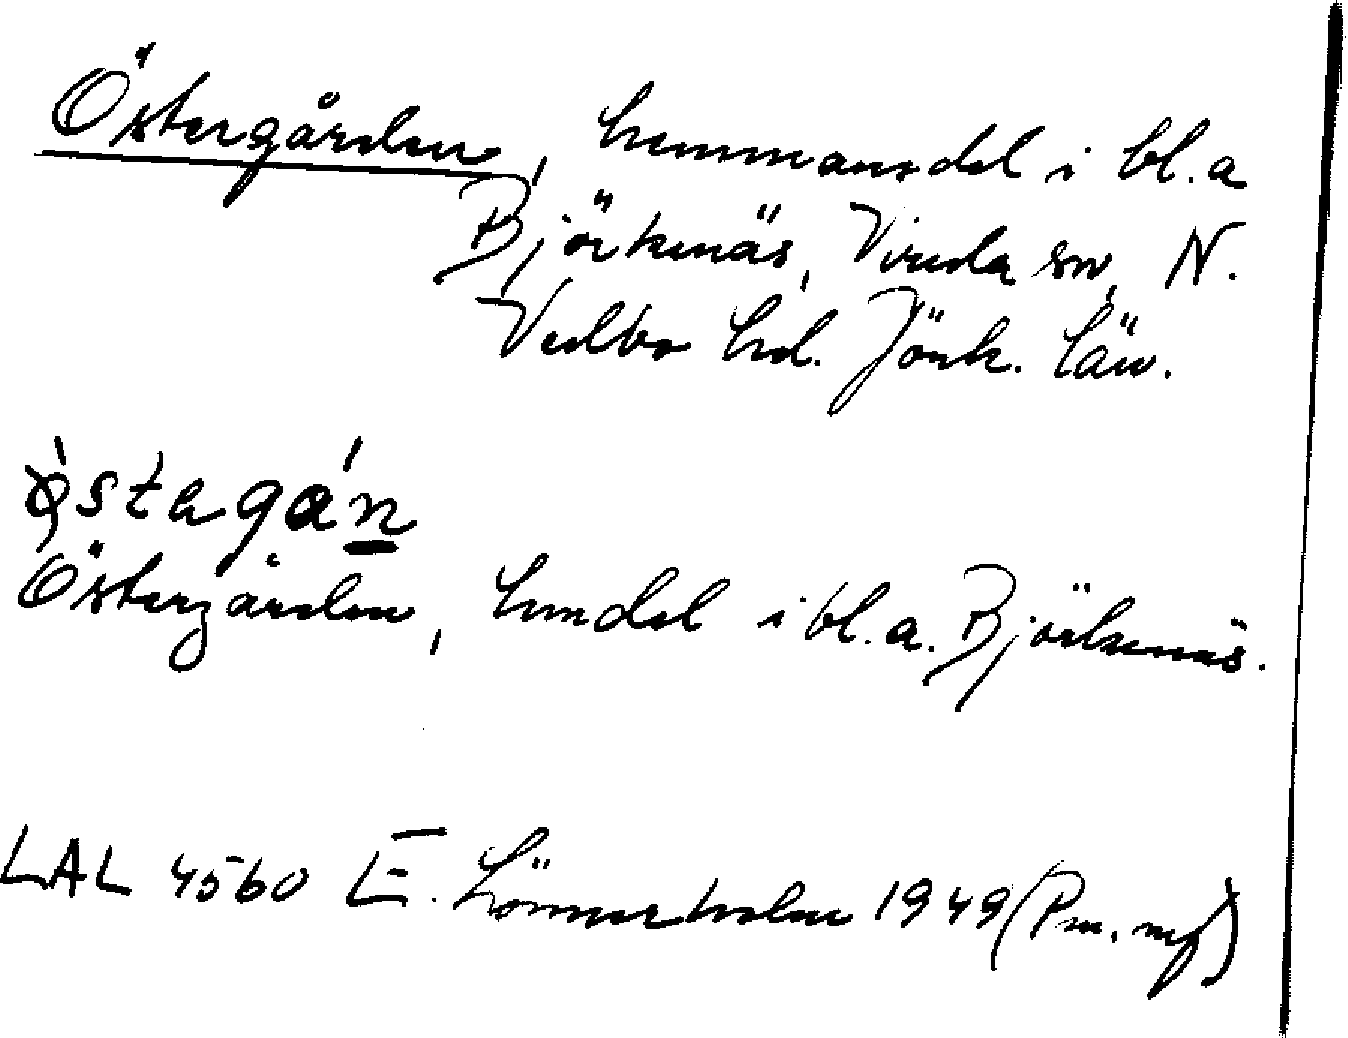 Östergården, hemmansdel i bl.a
Björkenäs, Vireda sn, N.
Vedbo hd. Jönk. län.
östagán
Östergården, hmdel i bl.a. Björkenäs.
LAL 4560 E. Lönnerholm 1949 (Pm. mf)